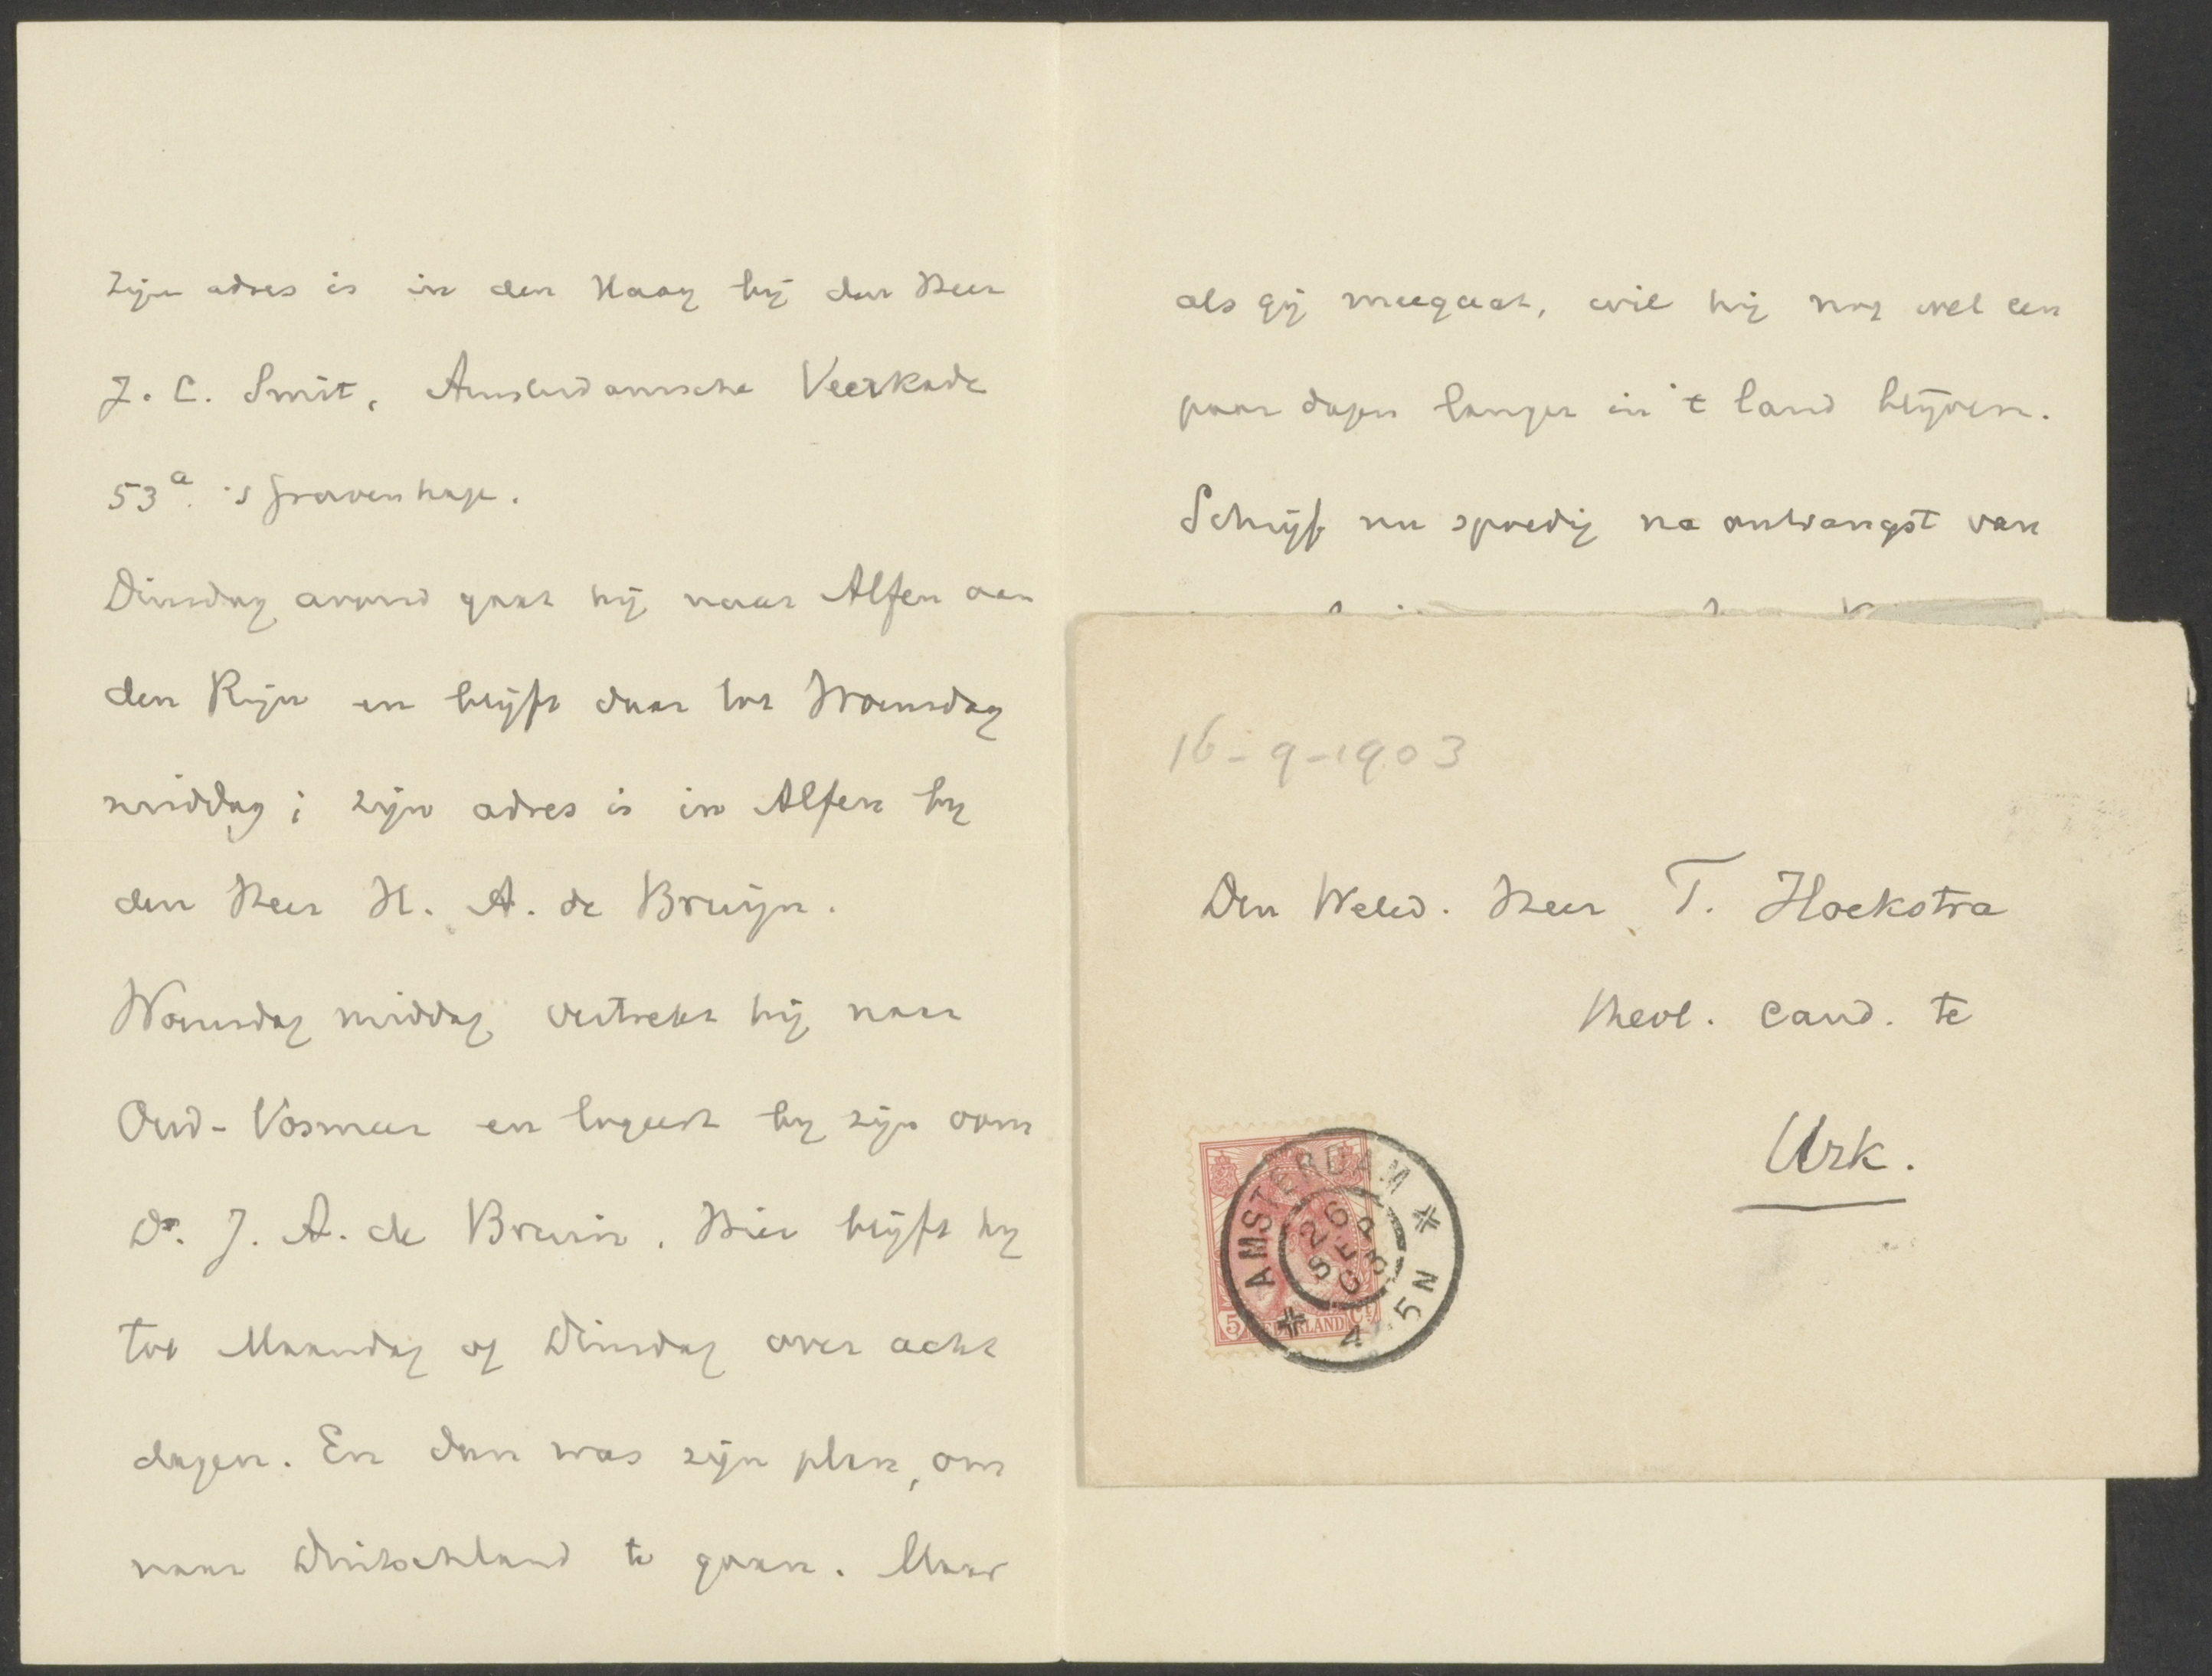 Zijn adres is in den Haag bij den Heer
J. C. Smit, Amsterdamsche Veerkade
53a. 's Gravenhage.
Dinsdag avond gaat hij naar Alfen aan
den Rijn en blijft daar tot Woensdag
middag; zijn adres is in Alfen bij
den Heer H. A. de Bruijn.
Woensdag middag vertrekt hij naar
Oud-Vosmeer en logeert bij zijn oom
Ds. J. A. de Bruin. Hier blijft hij
tot Maandag of Dinsdag over acht
dagen. En dan was zijn plan, om
naar Duitschland te gaan. Maar
als gij meegaat, wil hij nog wel een
paar dagen langer in 't land blijven.
Schrijf nu spoedig na ontvangst van
16-9-1903
Den Weled. Heer T. Hoekstra
theol. cand. te
Urk.
AMSTERDAM
26
SEP
03
4-5N
5 NEDERLAND Ct.